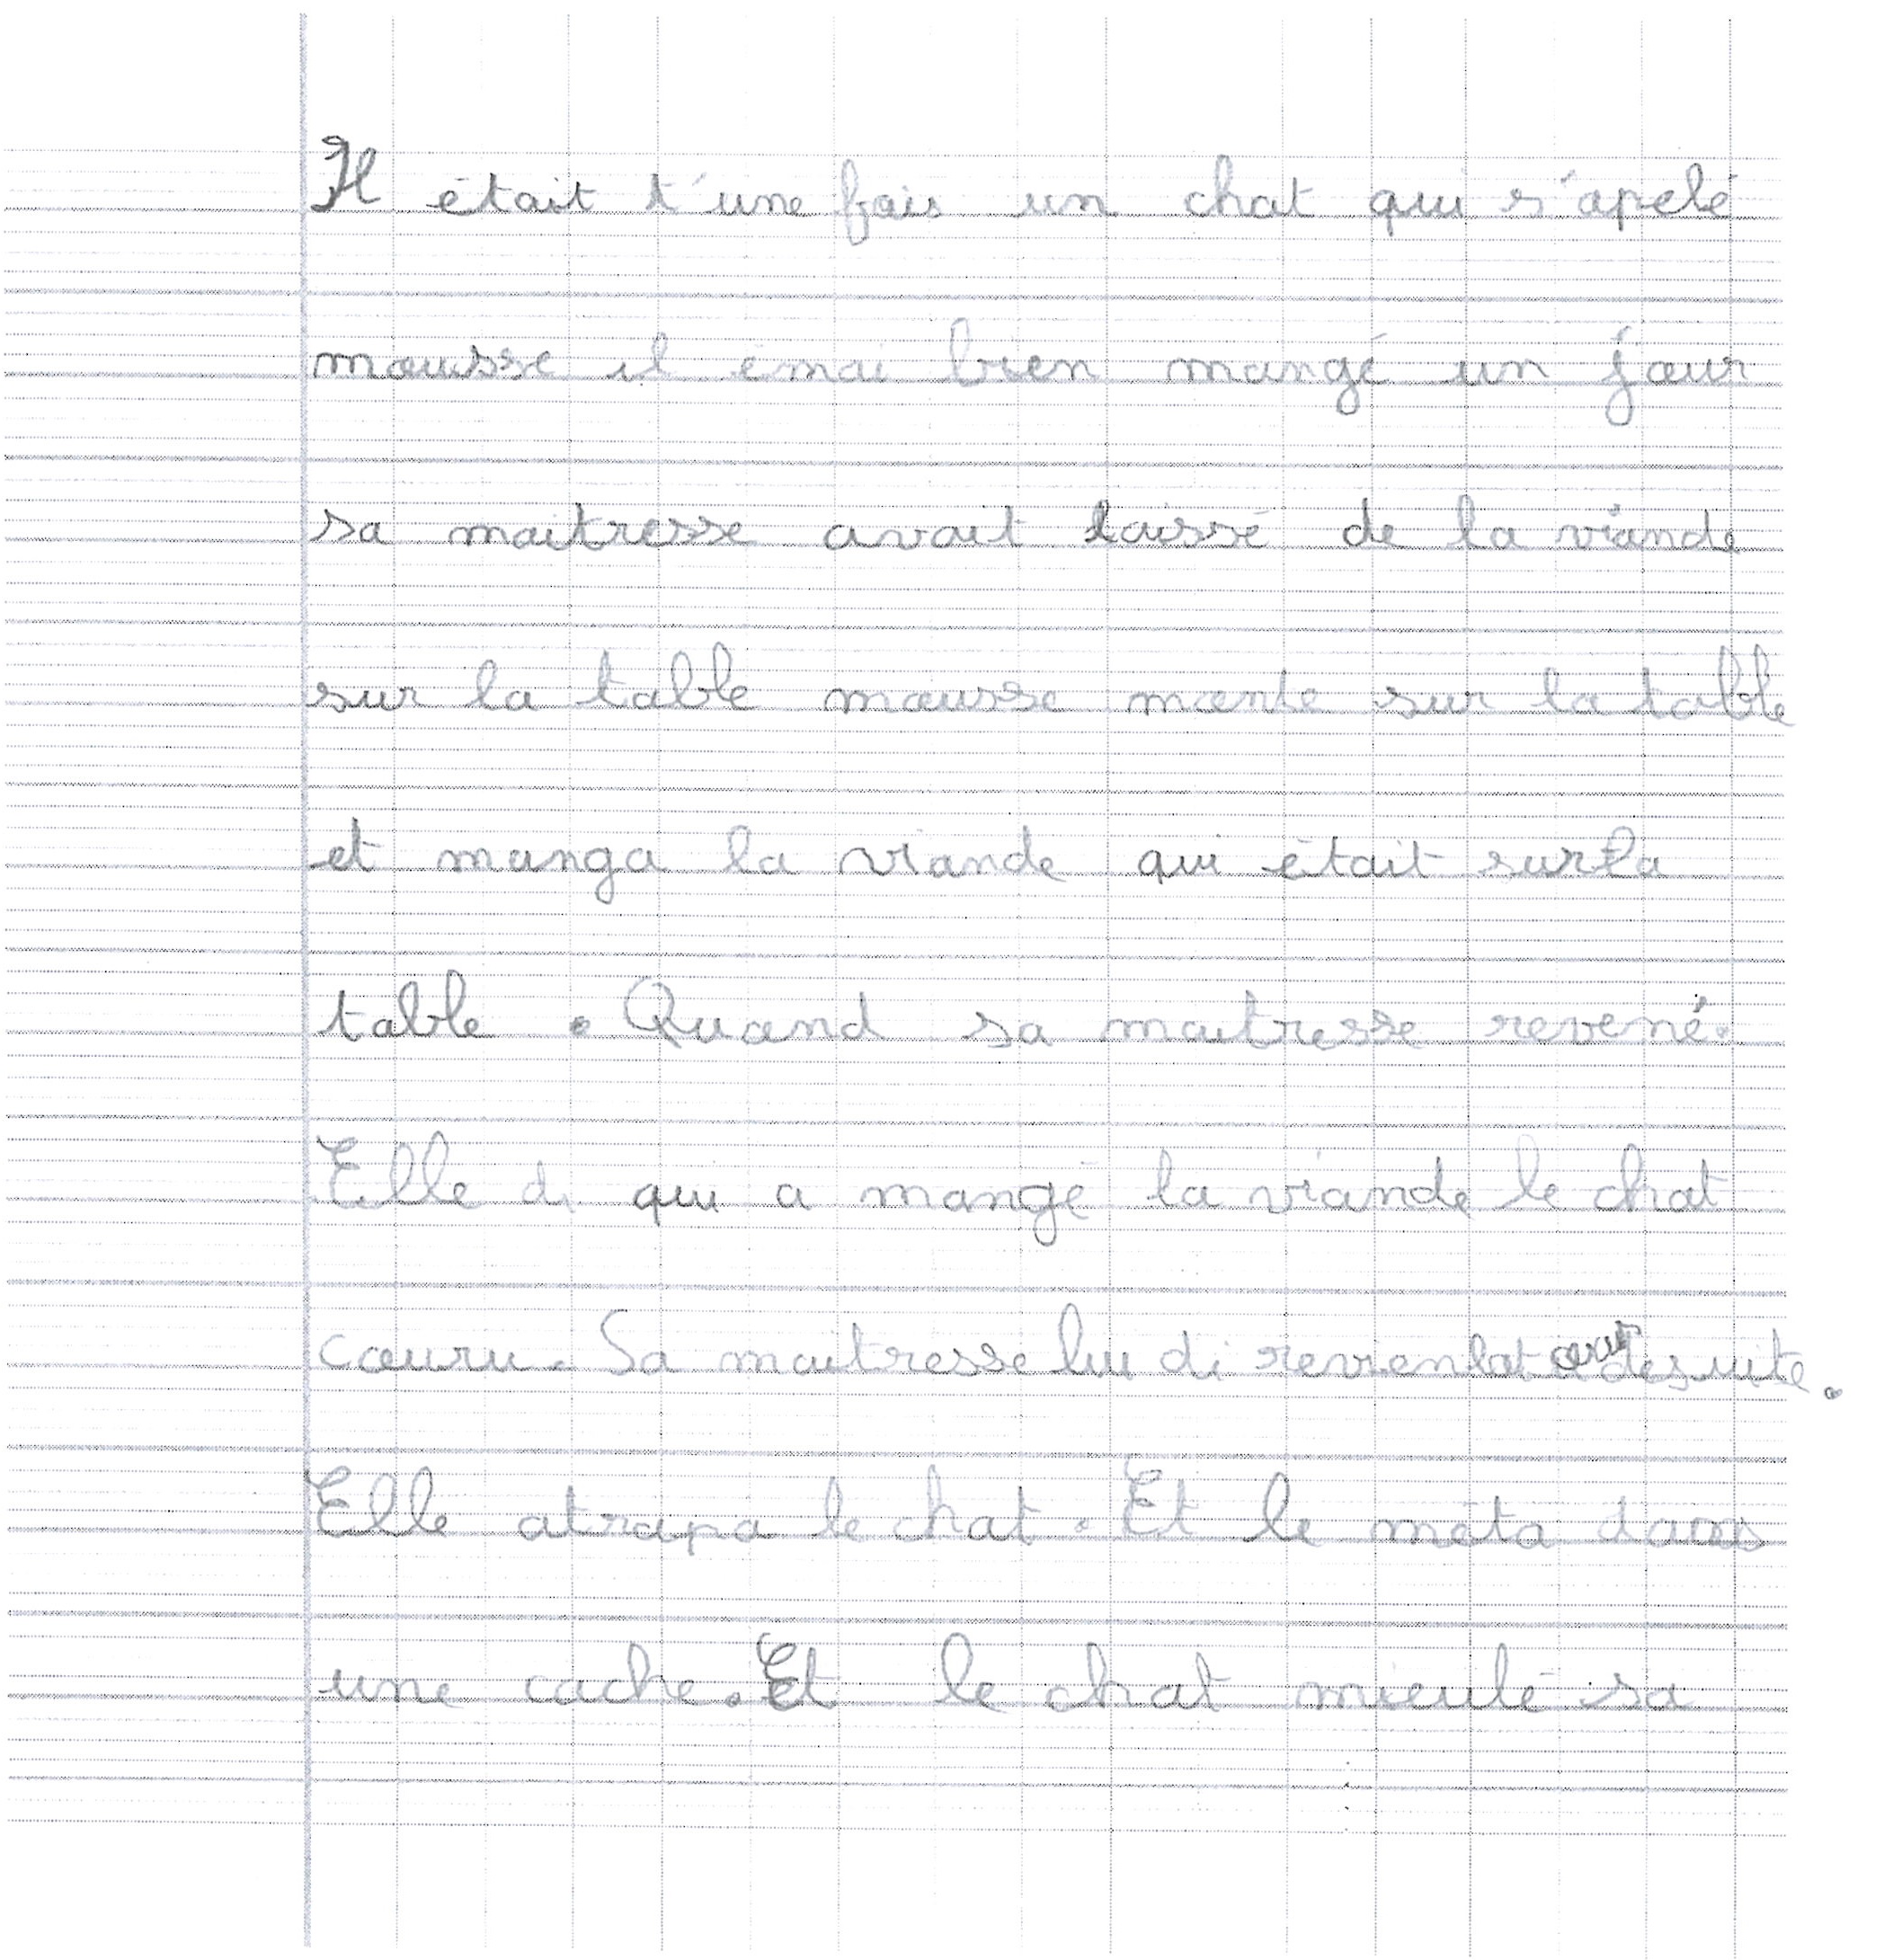 Il était t'une fois un chat qui s'apelé
mousse il émai bien mangé un jour
sa maitresse avait laissé de la viande
sur la table mousse monte sur la table
et manga la viande qui était sur la
table . Quand sa maitresse revené.
Elle di qui a mangé la viande le chat
couru. Sa maitresse lui di revien tout desuite.
Elle atrapa le chat. Et le méta dans
une cache. Et le chat mieulé sa